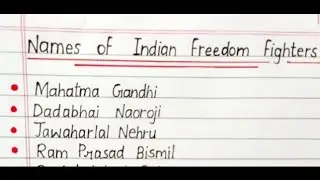 Names of Indian Freedom Fighters
Mahatma Gandhi
Dadabhai Naoroji
Jawaharlal Nehru
Ram Prasad Bismil